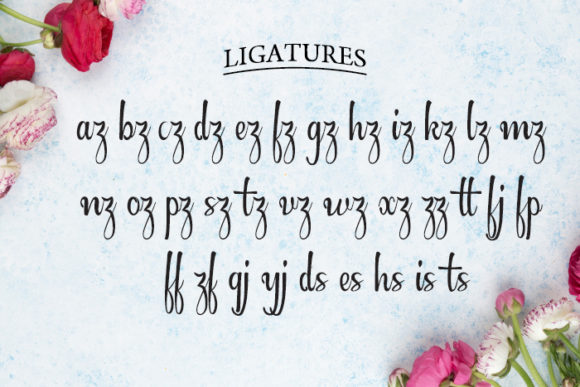 LIGATURES
az bz cz dz ez fz gz hz iz kz lz mz
nz oz pz sz tz vz wz xz zz tt fj fp
ff zf gj yj ds es hs is ts